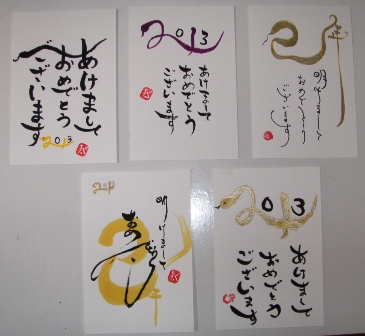 あけまして
おめでとう
ございます
2013
2013
あけまして
おめでとう
ございます
明けまして
おめでとう
ございます
明けまして
おめでとう
2013
あけまして
おめでとう
ございます